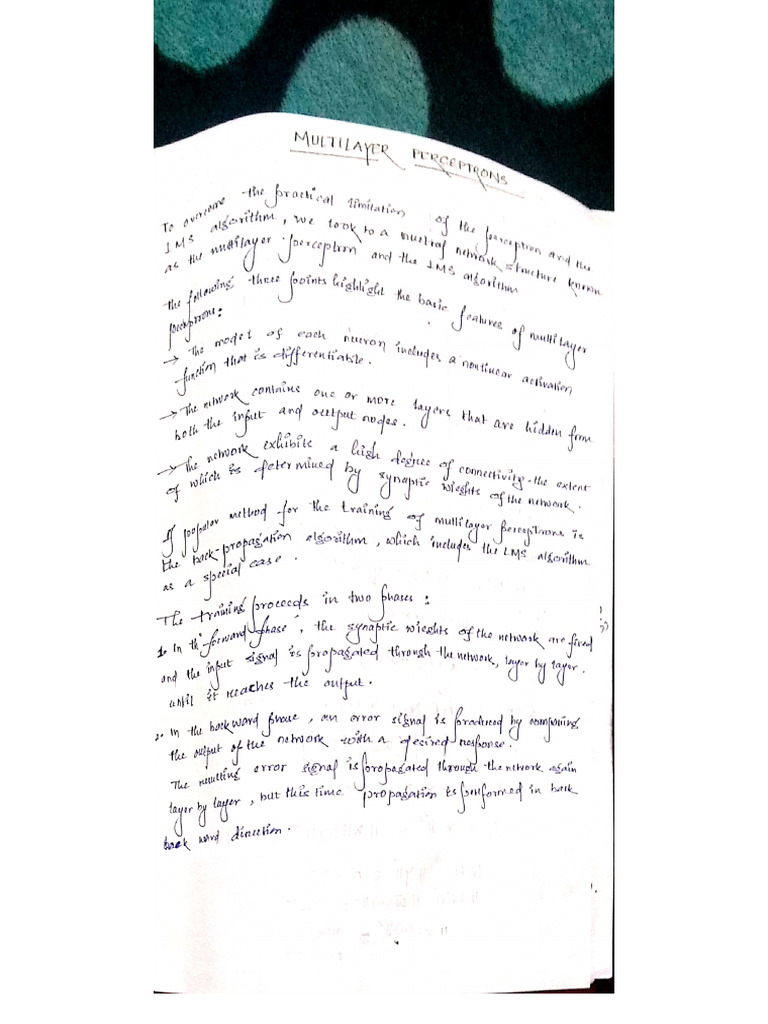 MULTILAYER PERCEPTRONS
To overcome the practical limitation of the perception and the
LMS algorithm, we took to a neutral network structure known
as the multilayer perceptron and the LMS algorithm
the following three points highlight the basic features of multilayer
perceptrons:
→ The model of each neuron includes a nonlinear activation
function that is differentiable.
→ The network contains one or more layers that are hidden from
both the input and output nodes.
→ The network exhibits a high degree of connectivity - the extent
of which is determined by synaptic wieghts of the network.
If popular method for the training of multilayer perceptrons is
the back-propagation algorithm, which includes the LMS algorithm
as a special case.
The training proceeds in two phases:
1. In th "forward phase", the synaptic wieghts of the network are fixed
and the input signal is propagated through the network, layer by layer.
until it reaches the output.
2. In the backward phase, an error signal is produced by comparing
the output of the network with a desired response.
The resulting error signal is propagated through the network again
layer by layer, but this time propagation is performed in back
back ward direction.